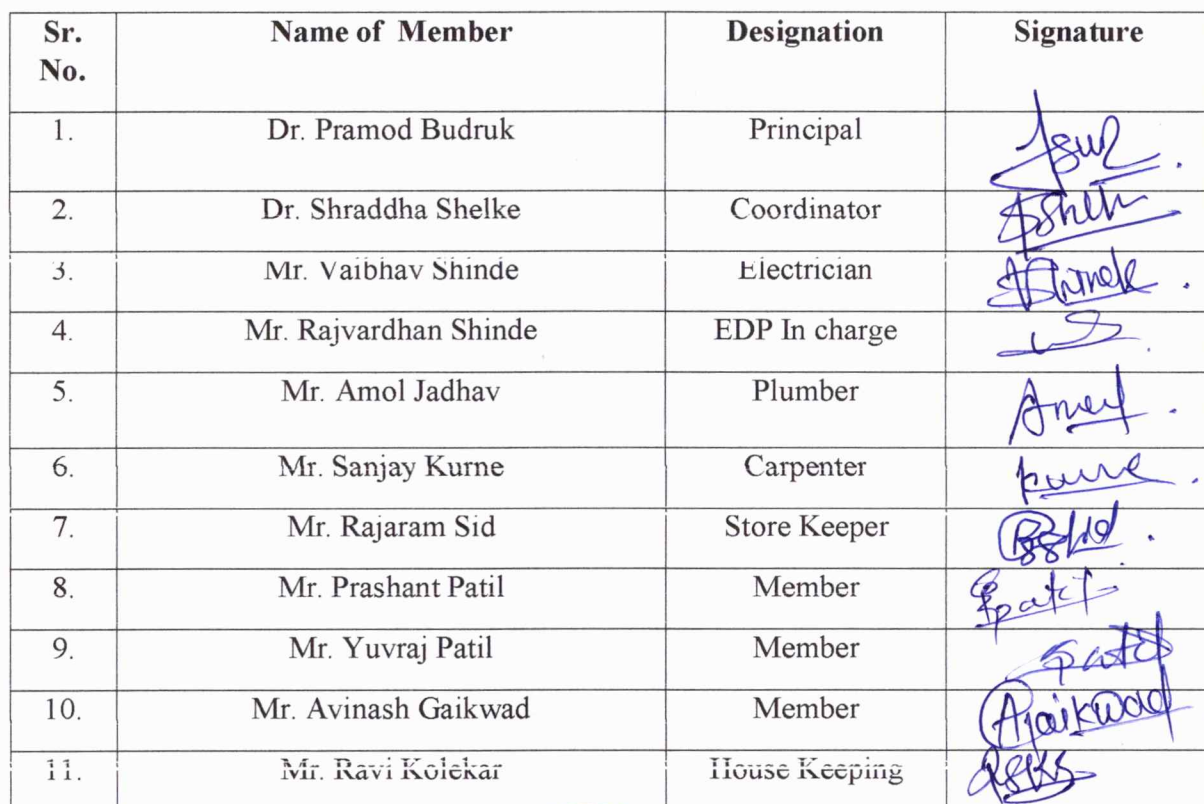 Sr. No. Name of Member Designation Signature
1. Dr. Pramod Budruk Principal
2. Dr. Shraddha Shelke Coordinator
3. Mr. Vaibhav Shinde Electrician
4. Mr. Rajvardhan Shinde EDP In charge
5. Mr. Amol Jadhav Plumber
6. Mr. Sanjay Kurne Carpenter
7. Mr. Rajaram Sid Store Keeper
8. Mr. Prashant Patil Member
9. Mr. Yuvraj Patil Member
10. Mr. Avinash Gaikwad Member
11. Mr. Ravi Kolekar House Keeping